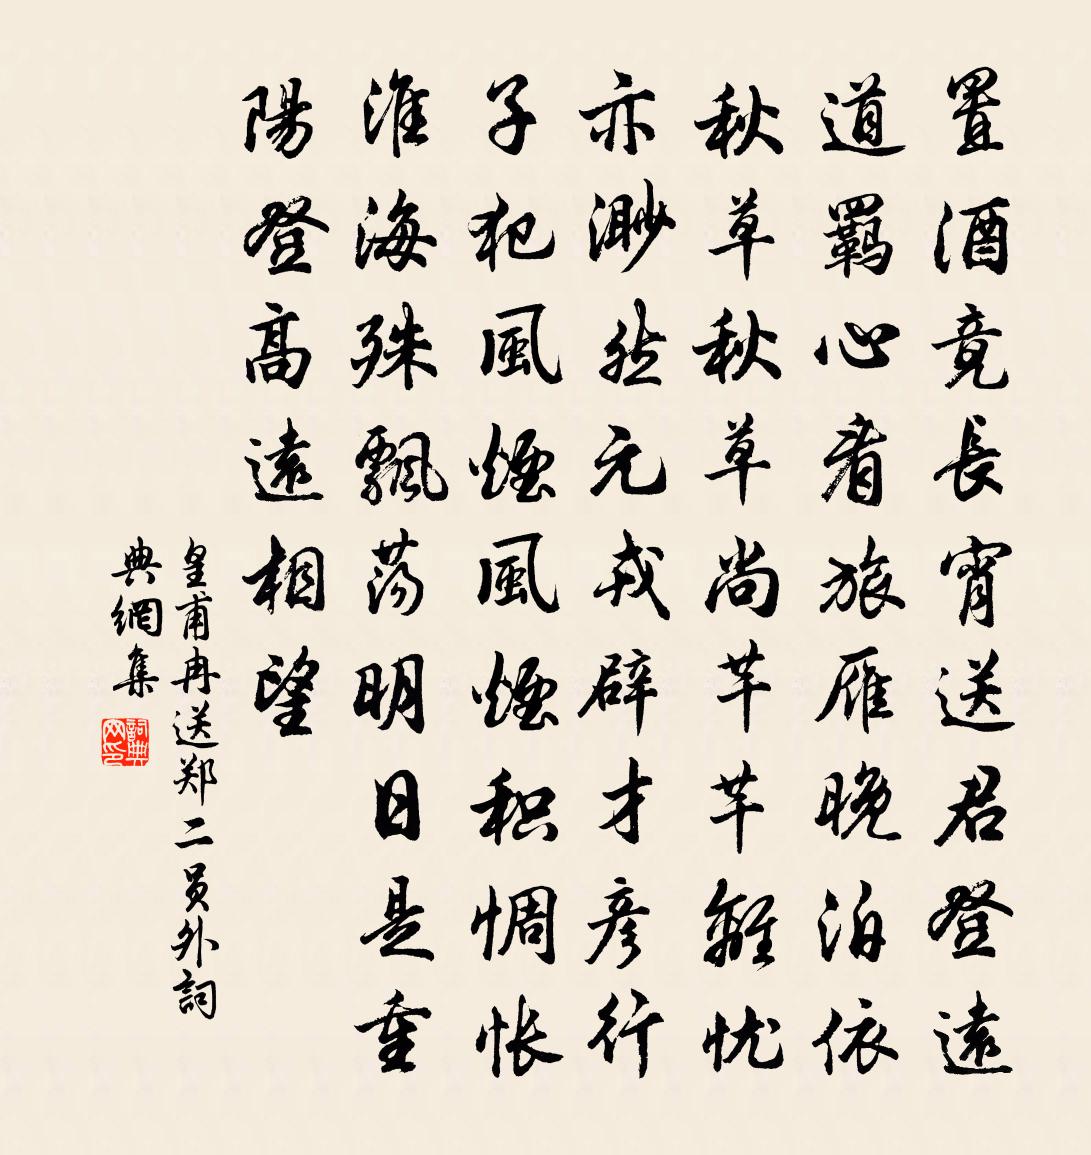 置酒竟長宵送君登遠
道羈心看旅雁晚泊依
秋草秋草尚芊芊離忧
亦渺然元戎辟才彦行
子犯風煙風煙积惆怅
淮海殊飄荡明日是重
陽登高遠相望
皇甫冉送郑二员外詞
典網集
詞典网印